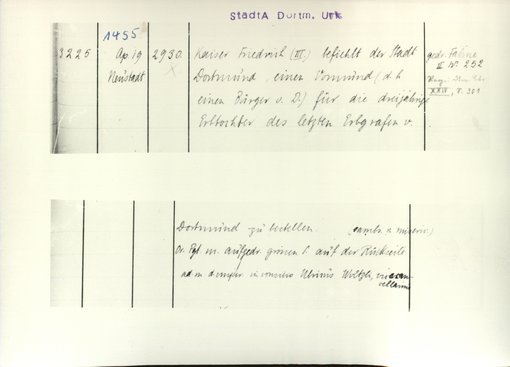 StadtA Dortm. Urk
1455
3225 Ap. 19 2930. Kaiser Friedrich (III) befiehlt der Stadt gedr. Fahne
Neustadt Dortmund, einen Vormund (d. h. II Nr. 252
einen Bürger v. D.) für die dreijährige
XXIV, S. 301
Erbtochter des letzten Erbgrafen v.
Dortmund zu bestellen.
Or. Pgt m. aufgedr. grünen S. auf der Rückseite
ad m. d. imper. in consilio Ulricus Weltzli, vicecan-
cellarius